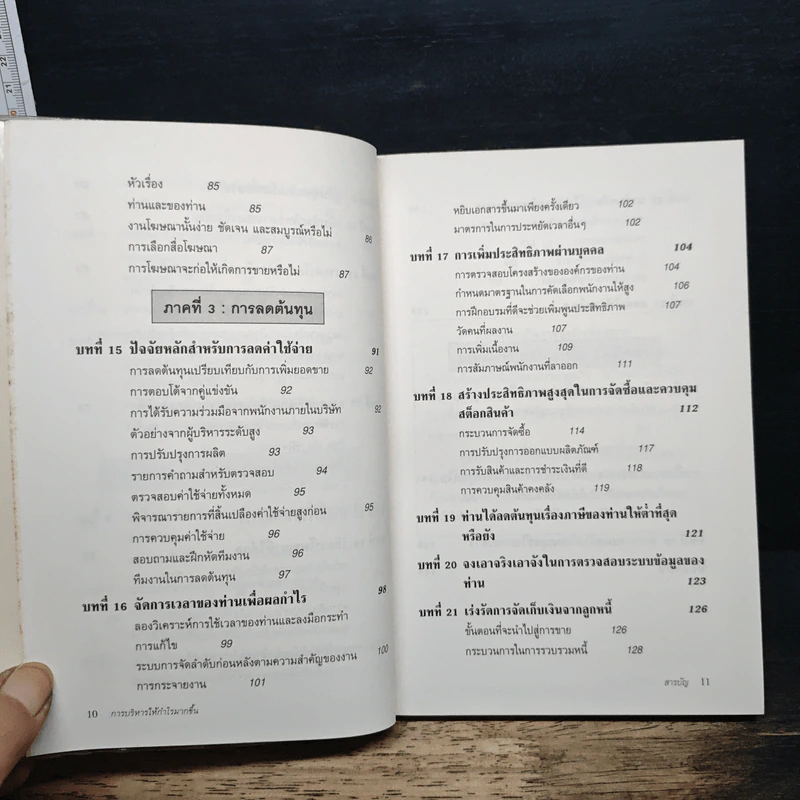 22
21
หัวเรื่อง 85
ท่านและของท่าน 85
งานโฆษณานั้นง่าย ชัดเจน และสมบูรณ์หรือไม่ 86
การเลือกสื่อโฆษณา 87
การโฆษณาจะก่อให้เกิดการขายหรือไม่ 87
ภาคที่ 3 : การลดต้นทุน
บทที่ 15 ปัจจัยหลักสำหรับการลดค่าใช้จ่าย 91
การลดต้นทุนเปรียบเทียบกับการเพิ่มยอดขาย 92
การตอบโต้จากคู่แข่งขัน 92
การได้รับความร่วมมือจากพนักงานภายในบริษัท 92
ตัวอย่างจากผู้บริหารระดับสูง 93
การปรับปรุงการผลิต 93
รายการคำถามสำหรับตรวจสอบ 94
ตรวจสอบค่าใช้จ่ายทั้งหมด 95
พิจารณารายการที่สิ้นเปลืองค่าใช้จ่ายสูงก่อน 95
การควบคุมค่าใช้จ่าย 96
สอบถามและฝึกหัดทีมงาน 96
ทีมงานในการลดต้นทุน 97
บทที่ 16 จัดการเวลาของท่านเพื่อผลกำไร 98
ลองวิเคราะห์การใช้เวลาของท่านและลงมือกระทำ
การแก้ไข 99
ระบบการจัดลำดับก่อนหลังตามความสำคัญของงาน 100
การกระจายงาน 101
10 การบริหารให้กำไรมากขึ้น
หยิบเอกสารขึ้นมาเพียงครั้งเดียว 102
มาตรการในการประหยัดเวลาอื่นๆ 102
บทที่ 17 การเพิ่มประสิทธิภาพผ่านบุคคล 104
การตรวจสอบโครงสร้างขององค์กรของท่าน 104
กำหนดมาตรฐานในการคัดเลือกพนักงานให้สูง 106
การฝึกอบรมที่ดีจะช่วยเพิ่มพูนประสิทธิภาพ 107
วัดคนที่ผลงาน 107
การเพิ่มเนื้องาน 109
การสัมภาษณ์พนักงานที่ลาออก 111
บทที่ 18 สร้างประสิทธิภาพสูงสุดในการจัดซื้อและควบคุม
สต็อกสินค้า 112
กระบวนการจัดซื้อ 114
การปรับปรุงการออกแบบผลิตภัณฑ์ 117
การรับสินค้าและการชำระเงินที่ดี 118
การควบคุมสินค้าคงคลัง 119
บทที่ 19 ท่านได้ลดต้นทุนเรื่องภาษีของท่านให้ต่ำที่สุด
หรือยัง 121
บทที่ 20 จงเอาจริงเอาจังในการตรวจสอบระบบข้อมูลของ
ท่าน 123
บทที่ 21 เร่งรัดการจัดเก็บเงินจากลูกหนี้ 126
ขั้นตอนที่จะนำไปสู่การขาย 126
กระบวนการในการรวบรวมหนี้ 128
สารบัญ 11